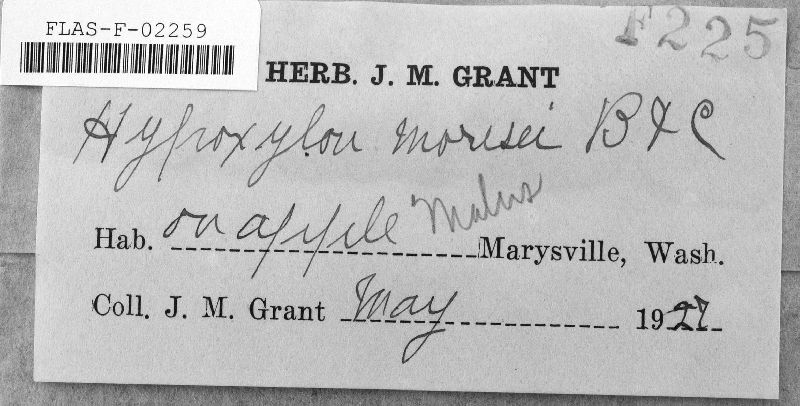 FLAS-F-02259
F225
HERB. J. M. GRANT
Hypoxylon morsei B & C
Hab. on apple Malus Marysville, Wash.
Coll. J. M. Grant May 1927